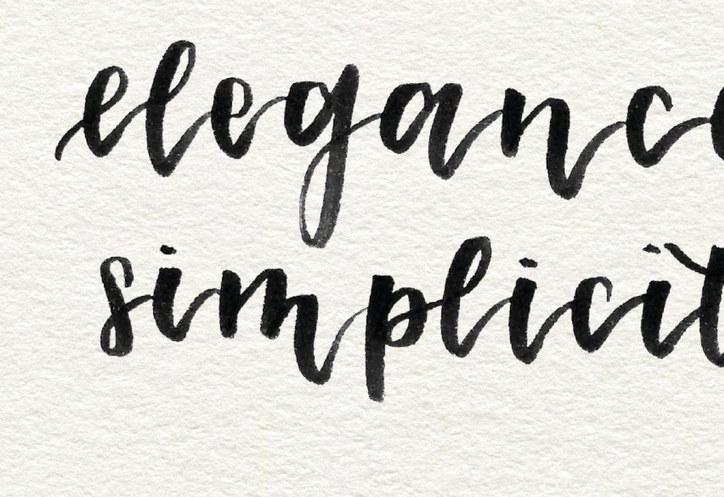 eleganc
simplicit